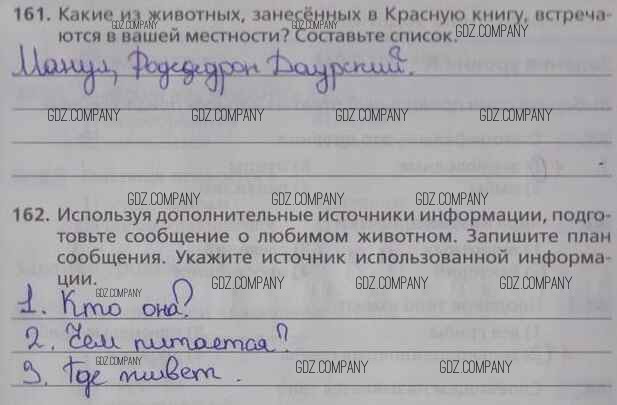 161. Какие из животных, занесённых в Красную книгу, встреча-
GDZ.COMPANY GDZ.COMPANY GDZ.COMPANY
ются в вашей местности? Составьте список.
Манул, Родедедрон Даурский?.
GDZ.COMPANY GDZ.COMPANY GDZ.COMPANY GDZ.COMPANY
GDZ.COMPANY GDZ.COMPANY GDZ.COMPANY
162. Используя дополнительные источники информации, подго-
товьте сообщение о любимом животном. Запишите план
сообщения. Укажите источник использованной информа-
ции.
GDZ.COMPANY GDZ.COMPANY GDZ.COMPANY
1. Кто она?
2. Чем питается?
GDZ.COMPANY GDZ.COMPANY GDZ.COMPANY
3. Где живет.